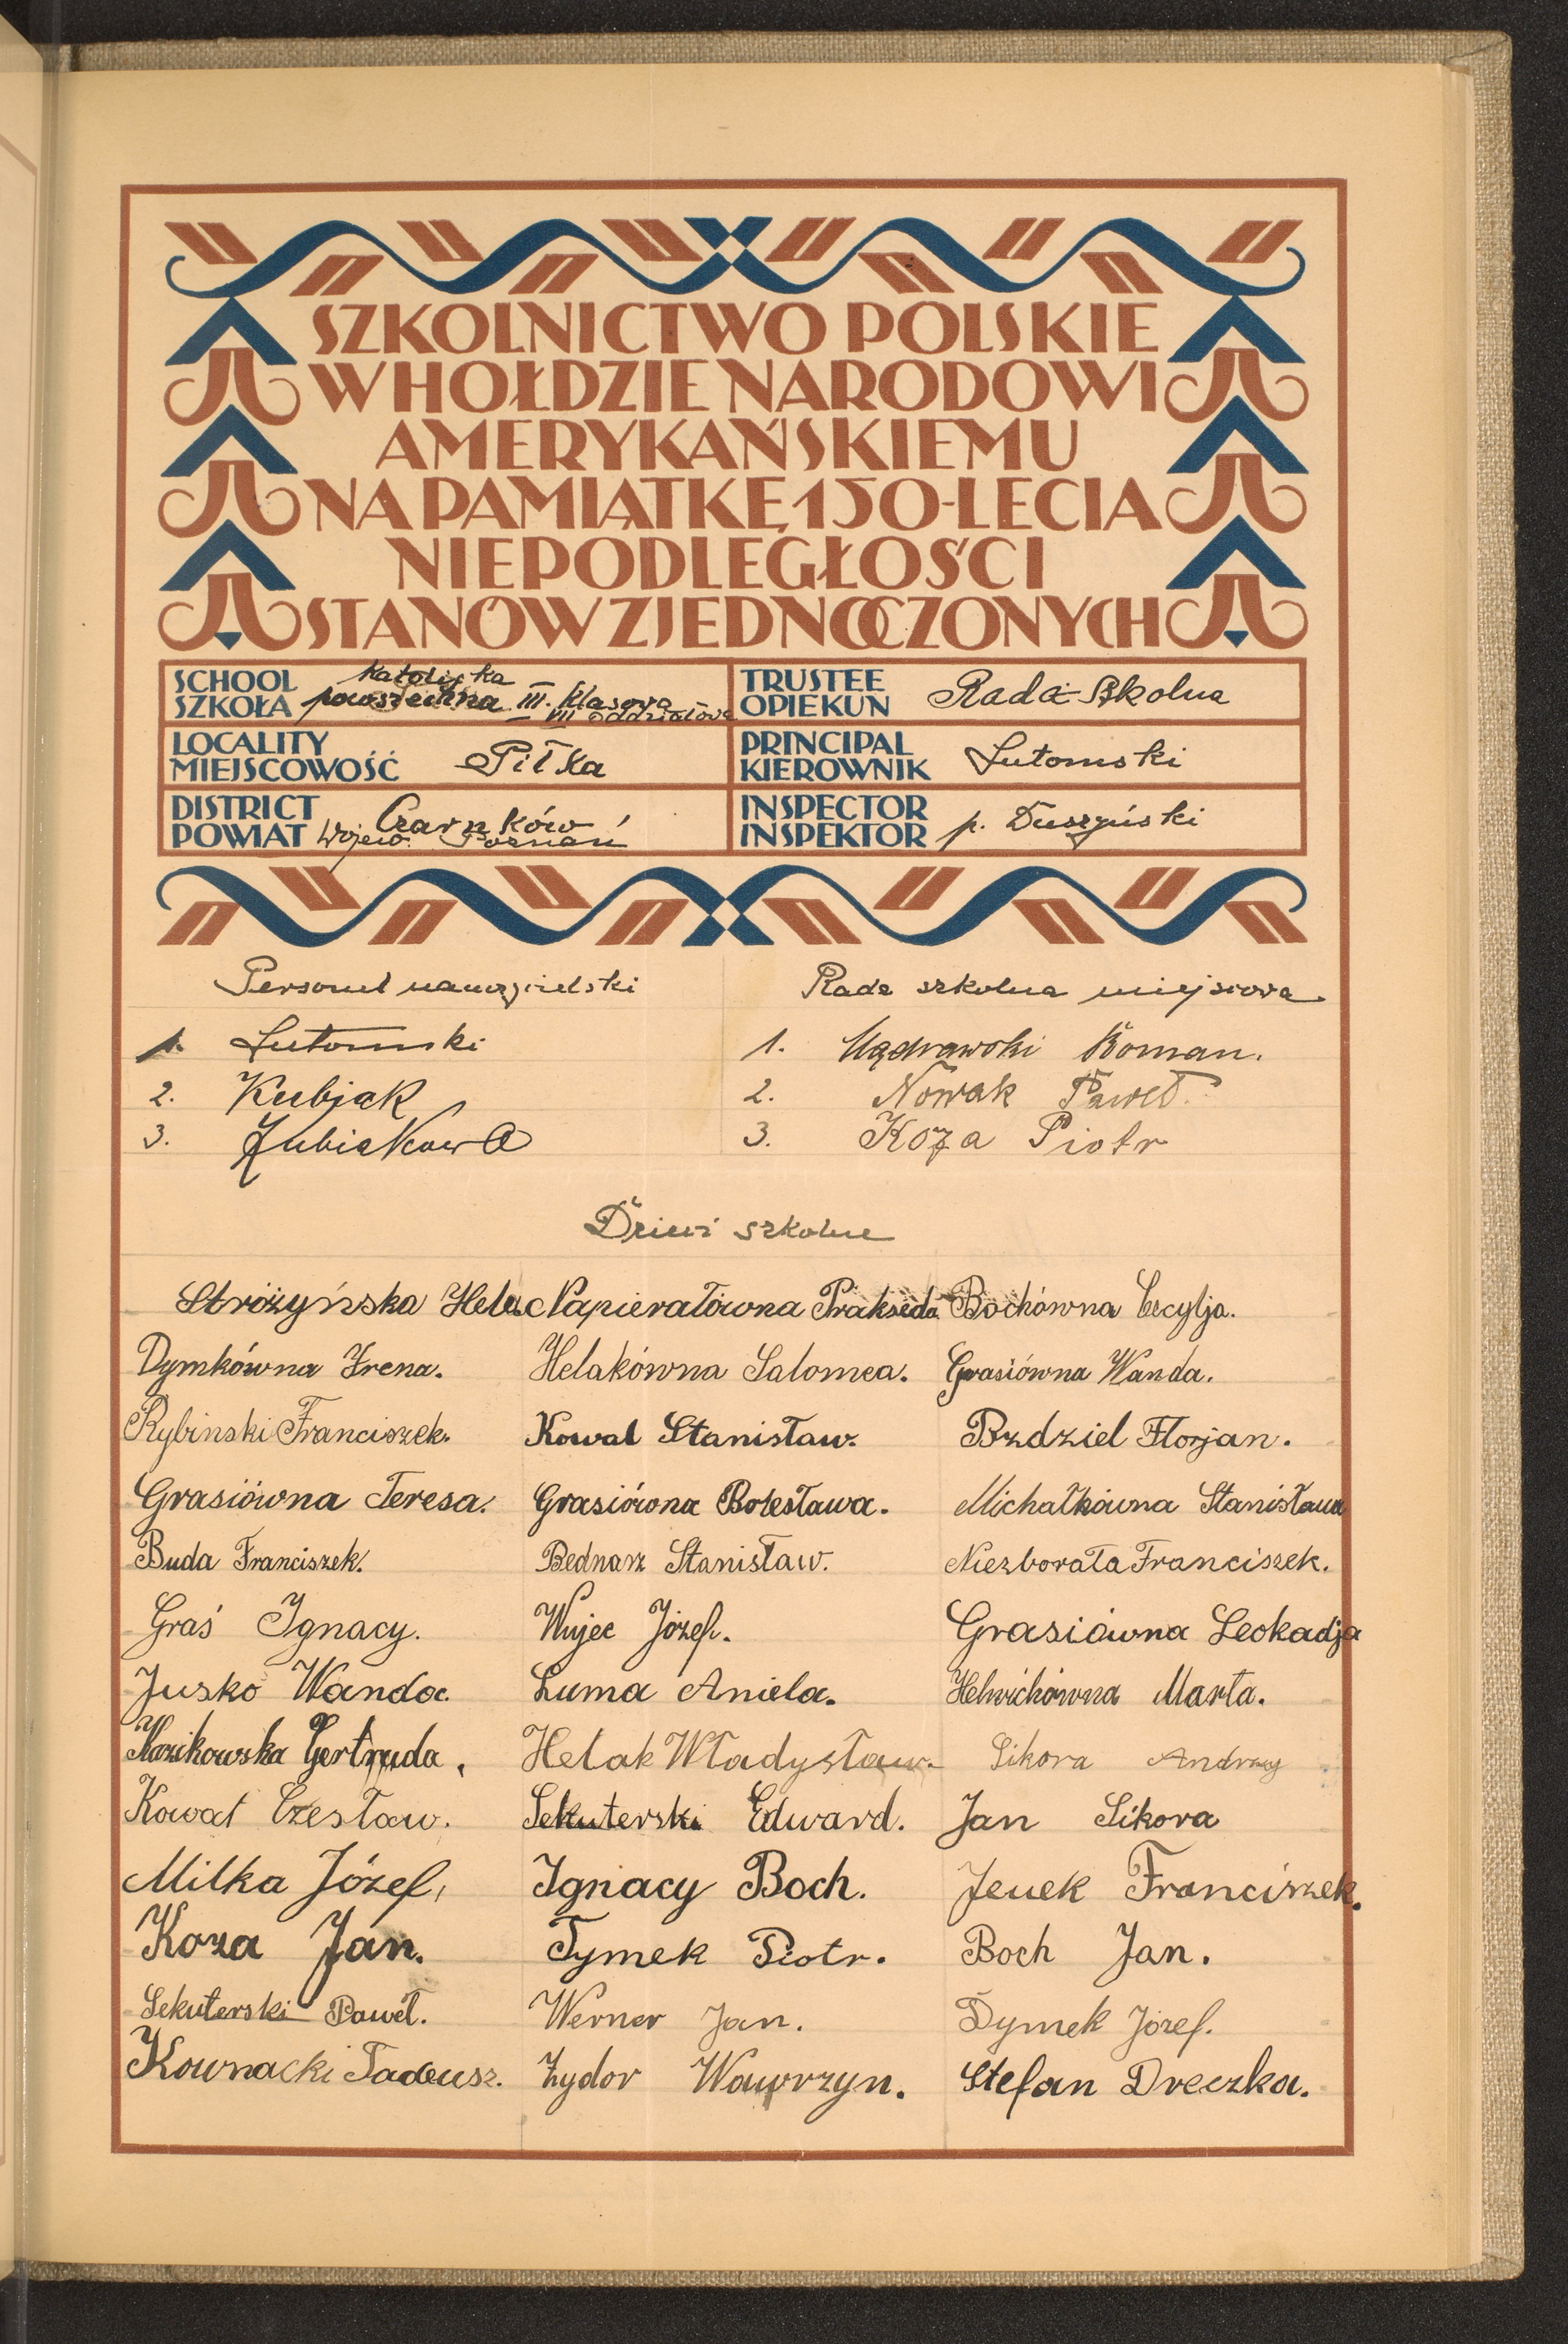 SZKOLNICTWO POLSKIE
W HOŁDZIE NARODOWI
AMERYKAŃSKIEMU
NA PAMIĄTKĘ 150-LECIA
NIEPODLEGŁOŚCI
STANÓW ZJEDNOCZONYCH
SCHOOL
SZKOŁA
Katolicka
powszechna III. klasowa
VII oddziałowa
TRUSTEE
OPIEKUN
Rada Szkolna
LOCALITY
MIEJSCOWOŚĆ
Piłka
PRINCIPAL
KIEROWNIK
Lutomski
DISTRICT
POWIAT
Czarnków
Wojew. Poznań
INSPECTOR
INSPEKTOR
p. Duszyński
Personel nauczycielski
Rada szkolna miejscowa
1. Lutomski
1. Mądrawski Roman.
2. Kubjak
2. Nowak Paweł.
3. Kubiakowa
3. Koza Piotr
Dzieci szkolne
Stróżyńska Hele Napierałówna Prakseda Bochówna Cecylja.
Dymkówna Irena. Helakówna Salomea. Grasiówna Wanda.
Rybinski Franciszek. Kowal Stanisław. Bzdziel Florjan.
Grasiówna Teresa. Grasiówna Bolesława. Michałkówna Stanisława
Buda Franciszek. Bednarz Stanisław. Niezborała Franciszek.
Graś Ignacy. Wujec Józef. Grasiówna Leokadja
Jusko Wanda. Luma Aniela. Helwichówna Marta.
Mazikowska Gertruda, Helak Władysław. Sikora Andrzej
Kowal Czesław. Sekuterski Edward. Jan Sikora
Milka Józef, Ignacy Boch. Jenek Franciszek.
Koza Jan. Tymek Piotr. Boch Jan.
Sekuterski Paweł. Werner Jan. Dymek Józef.
Kownacki Tadeusz. Żydor Wawrzyn. Stefan Dreczka.